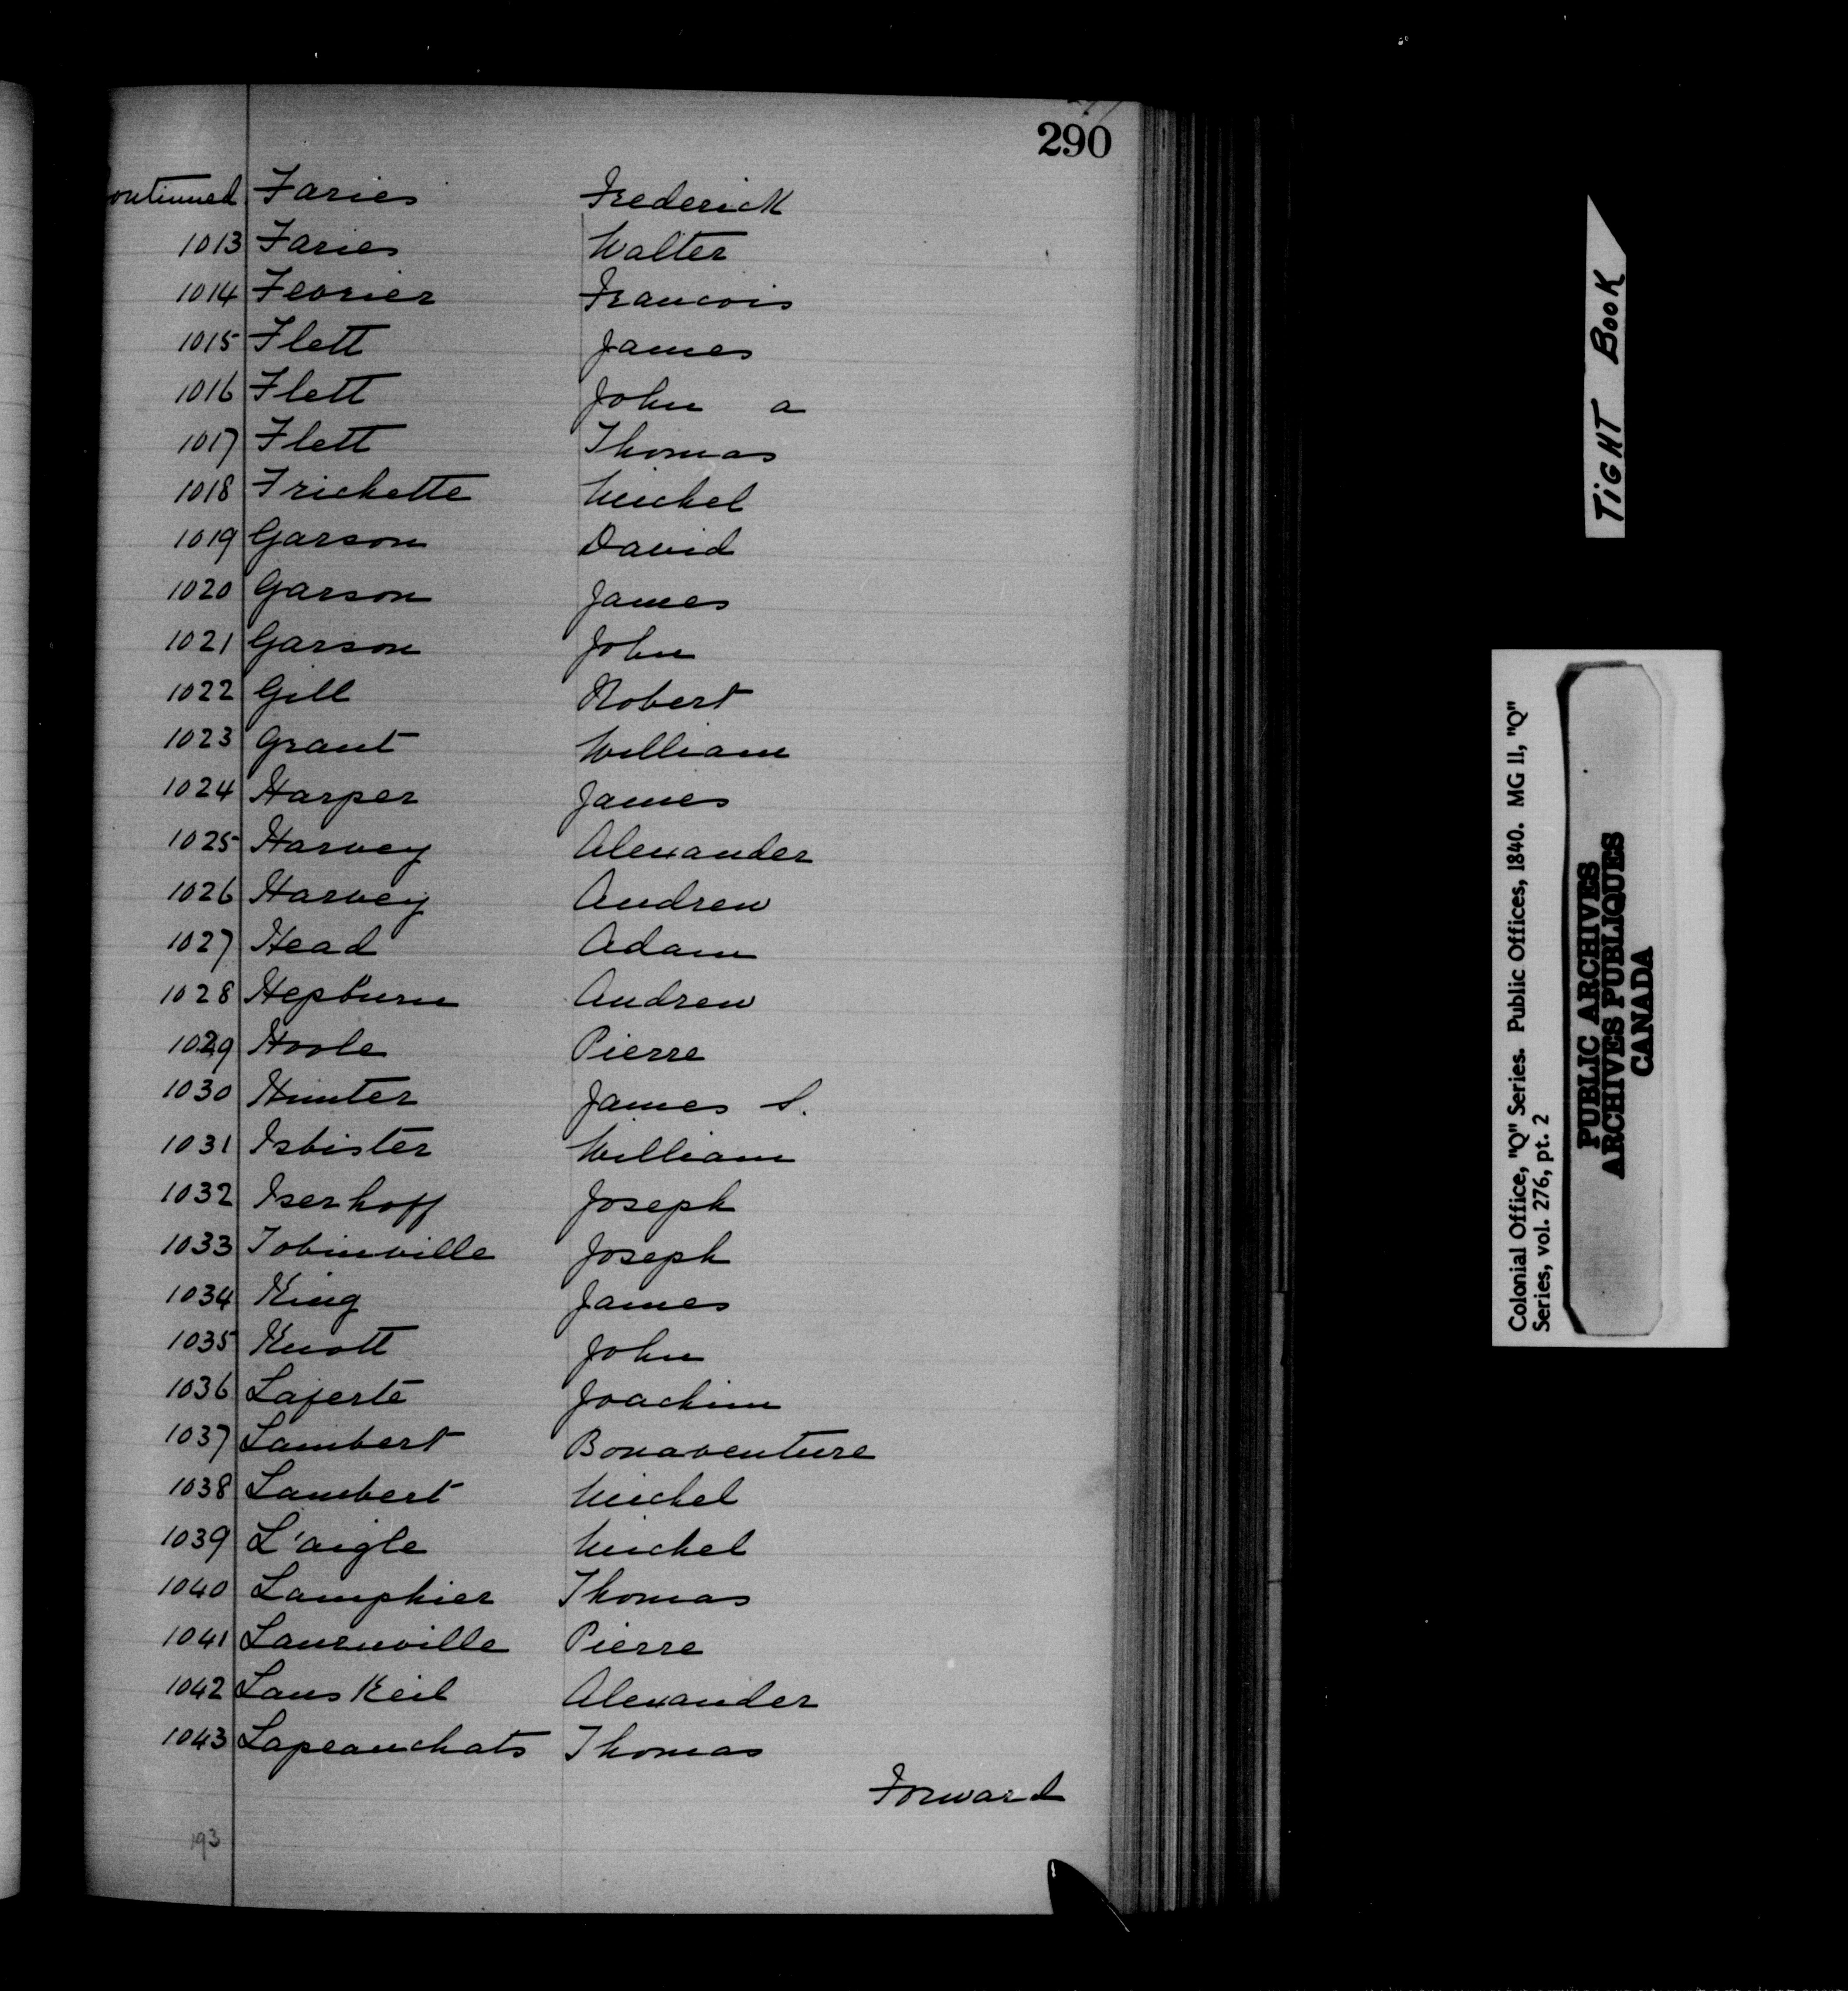 290
ontinued Faries Frederick
1013 Faries Walter
1014 Fevrier Francois
1015 Flett James
1016 Flett John a
1017 Flett Thomas
1018 Frichette Michel
1019 Garson David
1020 Garson James
1021 Garson John
1022 Gill Robert
1023 Grant William
1024 Harper James
1025 Harvey Alexander
1026 Harvey Andrew
1027 Head Adam
1028 Hepburn Andrew
1029 Hoole Pierre
1030 Hunter James S.
1031 Isbister William
1032 Iserhoff Joseph
1033 Jobinville Joseph
1034 King James
1035 Knott John
1036 Laferte Joachim
1037 Lambert Bonaventure
1038 Lambert Michel
1039 L'aigle Michel
1040 Lamphier Thomas
1041 Pierre
1042 Alexander
1043 Lapeauchats Thomas
Forward
193
TIGHT BOOK
Colonial Office, "Q" Series. Public Offices, 1840. MG 11, "Q"
Series, vol. 276, pt. 2
PUBLIC ARCHIVES
ARCHIVES PUBLIQUES
CANADA